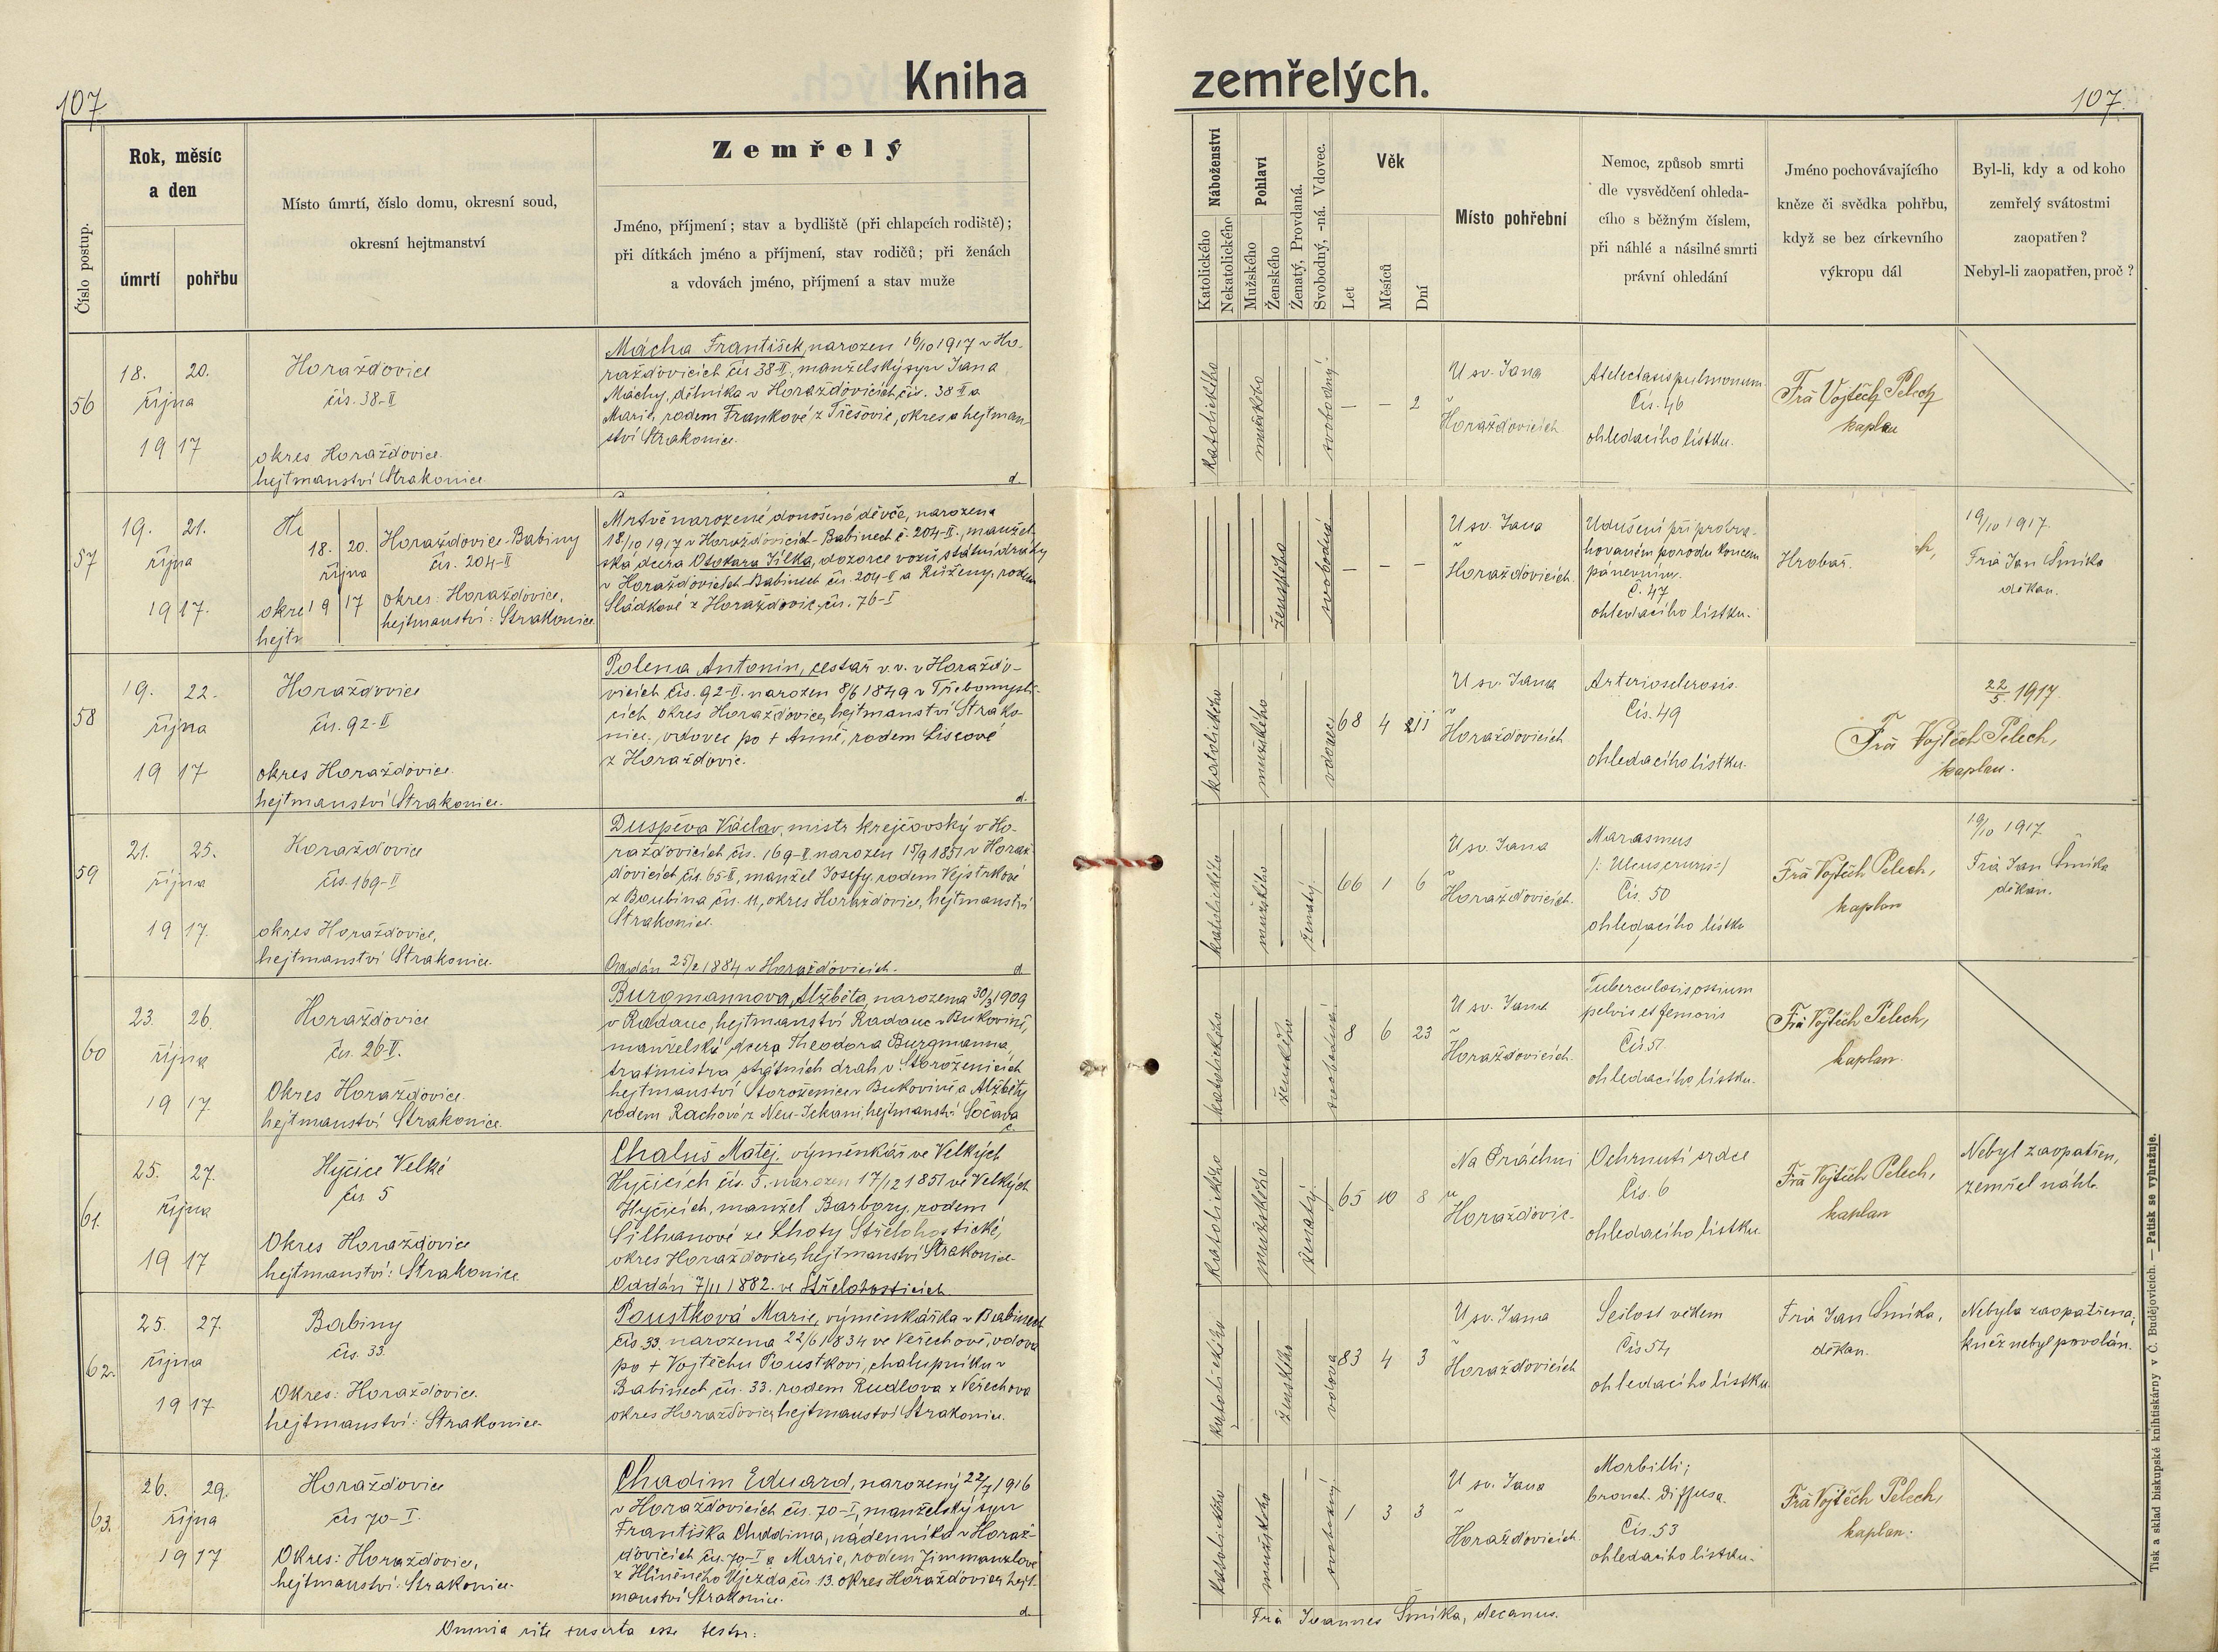 107.
Kniha
zemřelých.
107.
Číslo postup.
Rok, měsíc
a den
úmrtí
pohřbu
Místo úmrtí, číslo domu, okresní soud,
okresní hejtmanství
Zemřelý
Jméno, příjmení; stav a bydliště (při chlapcích rodiště);
při dítkách jméno a příjmení, stav rodičů; při ženách
a vdovách jméno, příjmení a stav muže
Náboženství
Katolického
Nekatolického
Pohlaví
Mužského
Ženského
Ženatý, Provdaná.
Svobodný, -ná. Vdovec.
Věk
Let
Měsíců
Dní
Místo pohřební
Nemoc, způsob smrti
dle vysvědčení ohleda-
cího s běžným číslem,
při náhlé a násilné smrti
právní ohledání
Jméno pochovávajícího
kněze či svědka pohřbu,
když se bez církevního
výkropu dál
Byl-li, kdy a od koho
zemřelý svátostmi
zaopatřen?
Nebyl-li zaopatřen, proč?
56
18. 20.
října
19 17
Horažďovice
čís. 38-II
okres Horažďovice.
hejtmanství Strakonice.
Mácha František, narozen 16/10 1917 v Ho-
ražďovicích čís 38-II, manželský syn Jana
Máchy, dělníka v Horažďovicích, čís. 38 II a
Marie, rodem Frankové z Třešovic, okres a hejtman-
ství Strakonice.
d.
katolického
mužského
svobodný.
— — 2
U sv. Jana
v
Horažďovicích
Atelectasis pulmonum.
Čís. 46
ohledacího lístku.
Frà Vojtěch Pelech
kaplan
57
19. 21.
října
19 17.
okre
hejtr
18. 20.
října
19 17
Horažďovice-Babiny
čís. 204-II
okres: Horažďovice,
hejtmanství: Strakonice
Mrtvě narozené donošené děvče, narozena
18/10 1917 v Horažďovicích-Babinech č. 204-II., manžel-
ská dcera Otokara Jílka, dozorce vozů státní dráhy
v Horažďovicích-Babinech čís. 204-II a Růženy, rodem
Sládkové z Horažďovic, čís. 76-I
ženského
svobodná
— — —
U sv. Jana
v
Horažďovicích.
Udušení při protra-
hovaném porodu koncem
pánevním.
Č. 47
ohledacího lístku.
Hrobař.
ch,
19/10 1917.
Frà Jan Šmíka
děkan.
58
19. 22.
října
19 17
Horažďovice
čís. 92-II
okres Horažďovice.
hejtmanství Strakonice.
Polena Antonín, cestář v.v. v Horažďo-
vicích čís. 92-II. narozen 8/6 1849 v Třebomysli-
cích, okres Horažďovice, hejtmanství Strako-
nice, vdovec po + Anně, rodem Liscové
z Horažďovic.
d.
katolického
mužského
vdovec
68 4 11
U sv. Jana
v
Horažďovicích
Arteriosclerosis.
Čís. 49
ohledacího lístku.
22/5. 1917.
Frà Vojtěch Pelech,
kaplan.
59
21. 25.
října
19 17.
Horažďovice
čís. 169-II
okres Horažďovice,
hejtmanství Strakonice.
Duspěva Václav, mistr krejčovský v Ho-
ražďovicích, čís. 169-II narozen 15/9 1851 v Horaž-
ďovicích, čís. 65-II, manžel Josefy, rodem Vejstrkové
z Boubína čís. 11, okres Horažďovice, hejtmanství
Strakonice.
Oddán 25/2 1884 v Horažďovicích.
d
katolického
mužského
ženatý.
66 1 6
U sv. Jana
v
Horažďovicích.
Marasmus
/: Ulcus cruris :/
Čís. 50
ohledacího lístku
Frà Vojtěch Pelech,
kaplan
19/10 1917.
Frà Jan Šmíka
děkan.
60
23. 26.
října
19 17
Horažďovice
čís. 26-II.
Okres Horažďovice.
hejtmanství Strakonice.
Burgmannova, Alžběta, narozena 30/3 1909
v Radauc, hejtmanství Radauc v Bukovině,
manželská dcera Theodora Burgmanna,
tratmistra státních drah v Storoženicích
hejtmanství Storoženice v Bukovině a Alžběty
rodem Rachové z Neu-Ickani hejtmanství Sočava
katolického
ženského
svobodná
8 6 23
U sv. Jana
v
Horažďovicích.
Tuberculosis ossium
pelvis et femoris
Čís 51.
ohledacího lístku.
Frà Vojtěch Pelech,
kaplan.
61.
25. 27.
října
19 17
Hyčice Velké
čís 5
Okres Horažďovice
hejtmanství: Strakonice
Chaluš Matěj. výměnkář ve Velkých
Hyčicích čís. 5. narozen 17/12 1851 ve Velkých
Hyčicích, manžel Barbory, rodem
Silhanové ze Lhoty Střelohostické,
okres Horažďovice, hejtmanství Strakonice.
Oddán 7/11 1882. ve Střelohosticích.
katolického
mužského
ženatý.
65 10 8
Na Práchni
u
Horažďovic.
Ochrnutí srdce
Čís. 6
ohledacího lístku
Frà Vojtěch Pelech,
kaplan
Nebyl zaopatřen,
zemřel náhle.
62.
25. 27.
října
19 17
Babiny
čís. 33.
Okres: Horažďovice.
hejtmanství: Strakonice.
Poustková Marie, výměnkářka v Babinech
čís. 33. narozena 22/6 1834 ve Veřechově, vdova
po + Vojtěchu Poustkovi, chalupníku v
Babinech čís. 33. rodem Rudlova z Veřechova
okres Horažďovice, hejtmanství Strakonice.
katolického
ženského
vdova
83 4 3
U sv. Jana
v
Horažďovicích
Sešlost věkem
Čís 54
ohledacího lístku.
Frà Jan Šmíka,
děkan.
Nebyla zaopatřena,
kněz nebyl povolán.
63.
26. 29.
října
19 17
Horažďovice
čís 70-I.
Okres: Horažďovice,
hejtmanství: Strakonice.
Chadim Eduard, narozený 22/7 1916
v Horažďovicích čís. 70-I, manželský syn
Františka Chadima, nádenníka v Horaž-
ďovicích čís. 70-I a Marie, rodem Zimmanzlové
z Hliněného Újezda čís. 13. okres Horažďovice, hejt-
manství Strakonice.
d.
katolického
mužského
svobodný
1 3 3
U sv. Jana
v
Horažďovicích.
Morbilli;
bronch. diffusa.
Čís. 53
ohledacího lístku.
Frà Vojtěch Pelech,
kaplan.
Omnia rite inserta esse testor:
Frà Joannes Šmíka, decanus.
Tisk a sklad biskupské knihtiskárny v Č. Budějovicích. — Patisk se vyhražuje.